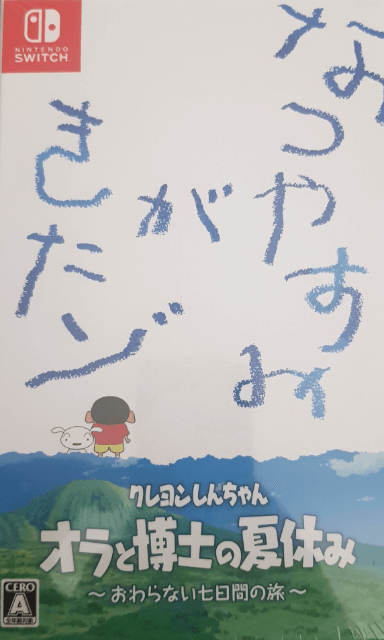 NINTENDO
SWITCH
なつやすみ
が
きたゾ
クレヨンしんちゃん
オラと博士の夏休み
～おわらない七日間の旅～
CERO
A
全年齢対象